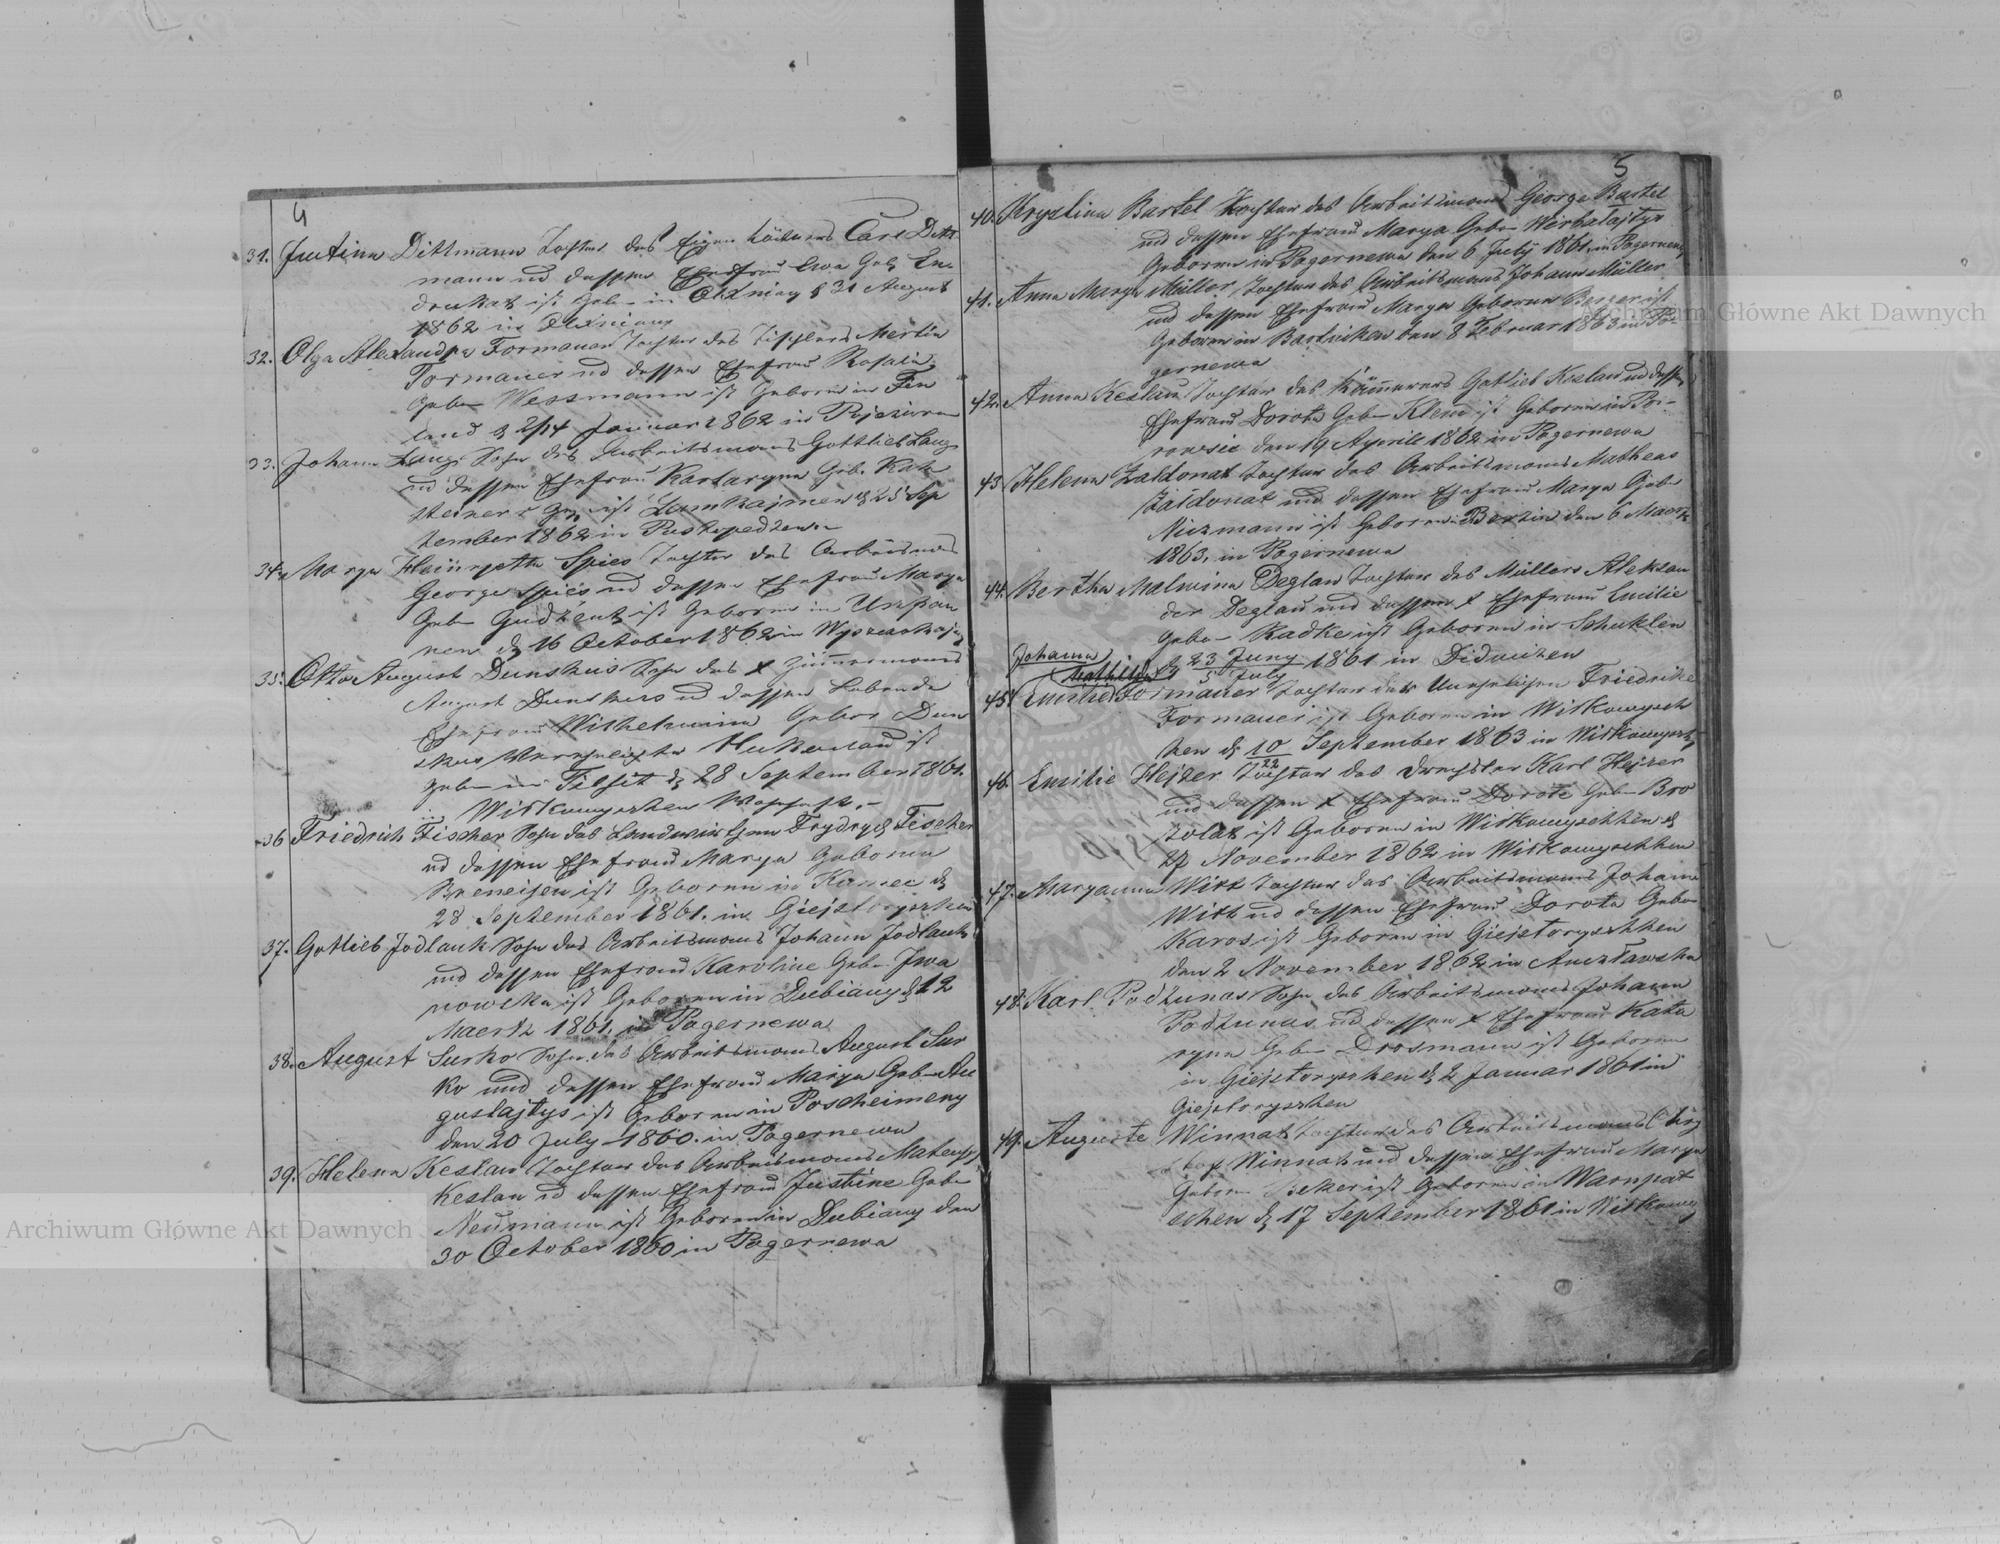 4
31. Justina Dittmann Tochter des Eigen Käthners Carl Ditt
mann und dessen Ehefrau Ewa Geb. En
drukat ist Geb. in d 31 August
1862 in
32. Olga Alexandra Formauer Tochter des Tischlers Mertin
Formauer und dessen Ehefrau Rosalia
Geb. Wessmann ist Geboren in Fin
land d 2/14 Januar 1862 in
33. Johann Lange Sohn des Arbeitsmans Gottlieb Lange
und dessen Ehefrau Kataryna Geb. Kak
ist d 25 Sep
tember 1862 in Puskepedzen
34. Marya Heinryetta Spies Tochter des Arbeitsmans
George Spies und dessen Ehefrau Marya
Geb. ist Geboren in Uszpau
nen d 16 October 1862 in
35. Otto August Dunskus Sohn des + Zimmermans
August Dunskus und dessen Lebende
Ehefrau Wilhelmina Gebor Dun
skus Verehelichte ist
Geb. in Tilsit d 28 September 1861.
in Witkowyschken Wohnhaft.
36 Friedrich Fischer Sohn des Landwirthen Frydrych Fischer
und dessen Ehefrau Marya Geborne
Breneisen ist Geboren in Kamec d
28 September 1861. in Giejstoryszken
37. Gotlieb Jodlauk Sohn des Arbeitsmans Johann Jodlauk
und dessen Ehefrau Karoline Geb. Iwa
nowska ist Geboren in Dubiany d 12
Maertz 1861. in Pogernewa
38. August Surko Sohn des Arbeitsmans August Sur
ko und dessen Ehefrau Marya Geb. Au
gustajtys ist Geboren in Poscheimeny
den 20 July 1860. in Pogernewa
39. Helena Keslau Tochter des Arbeitsmans Mateusz
Keslau und dessen Ehefrau Justine Geb.
Neumann ist Geboren in Dubiany den
30 October 1860 in Pogernewa
5
40. Krystina Bartel Tochter des Arbeitsmans George Bartel
und dessen Ehefrau Marya Geb. Wirbalajtys
Geboren in Pogernewa den 6 July 1861. in Pogernewa
41. Anna Marya Müller Tochter des Arbeitsmans Johann Müller
und dessen Ehefrau Marya Geboren Berger ist
Geboren in Bartnikau den 8 Februar 1863 in Po-
gernewa
42. Anna Keslau Tochter des Kämerers Gotlieb Keslau und dessen
Ehefrau Dorota Geb. Klein ist Geboren in Po-
rowsie den 19 Aprill 1862 in Pogernewa
43 Helena Zaldonat Tochter des Arbeitsmans Matheus
Zaldonat und dessen Ehefrau Marya Geb.
Niezmann ist Geboren in den 6 Maertz
1863. in Pogernewa
44. Bertha Malwina Deglau Tochter des Müllers Aleksan
der Deglau und dessen + Ehefrau Emilie
Gebo. Radke ist Geboren in Schuklen
d 23 Juny / 5 July 1861 in Didwizen
Johanna
Mathilda
45. Emilie Formauer Tochter der Unehelichen Friedrike
Formauer ist Geboren in Witkowysch
ken d 10/22 September 1863 in Witkowyschk
46. Emilie Hejzer Tochter des Drechsler Karl Hejzer
und dessen + Ehefrau Dorote Geb. Bro
zolat ist Geboren in Witkowyschken d
27 November 1862 in Witkowyschken
47. Maryanna Witt Tochter des Arbeitsmans Johann
Witt und dessen Ehefrau Dorota Gebo
Karos ist Geboren in Giejstoryschken
den 2 November 1862 in
48. Karl Podzunas Sohn des Arbeitsmans Johann
Podzunas und dessen + Ehefrau Kata
ryna Geb. Drosmann ist Geboren
in Giejstoryszken d 2 Januar 1861 in
Giejstoryszken
49. Auguste Winnat Tochter des Arbeitsmans Chri
stof Winnat und dessen Ehefrau Marya
Geboren Beker ist Geboren in Warnpat
schen d 17 September 1861 in Witkowy
Archiwum Główne Akt Dawnych
Archiwum Główne Akt Dawnych